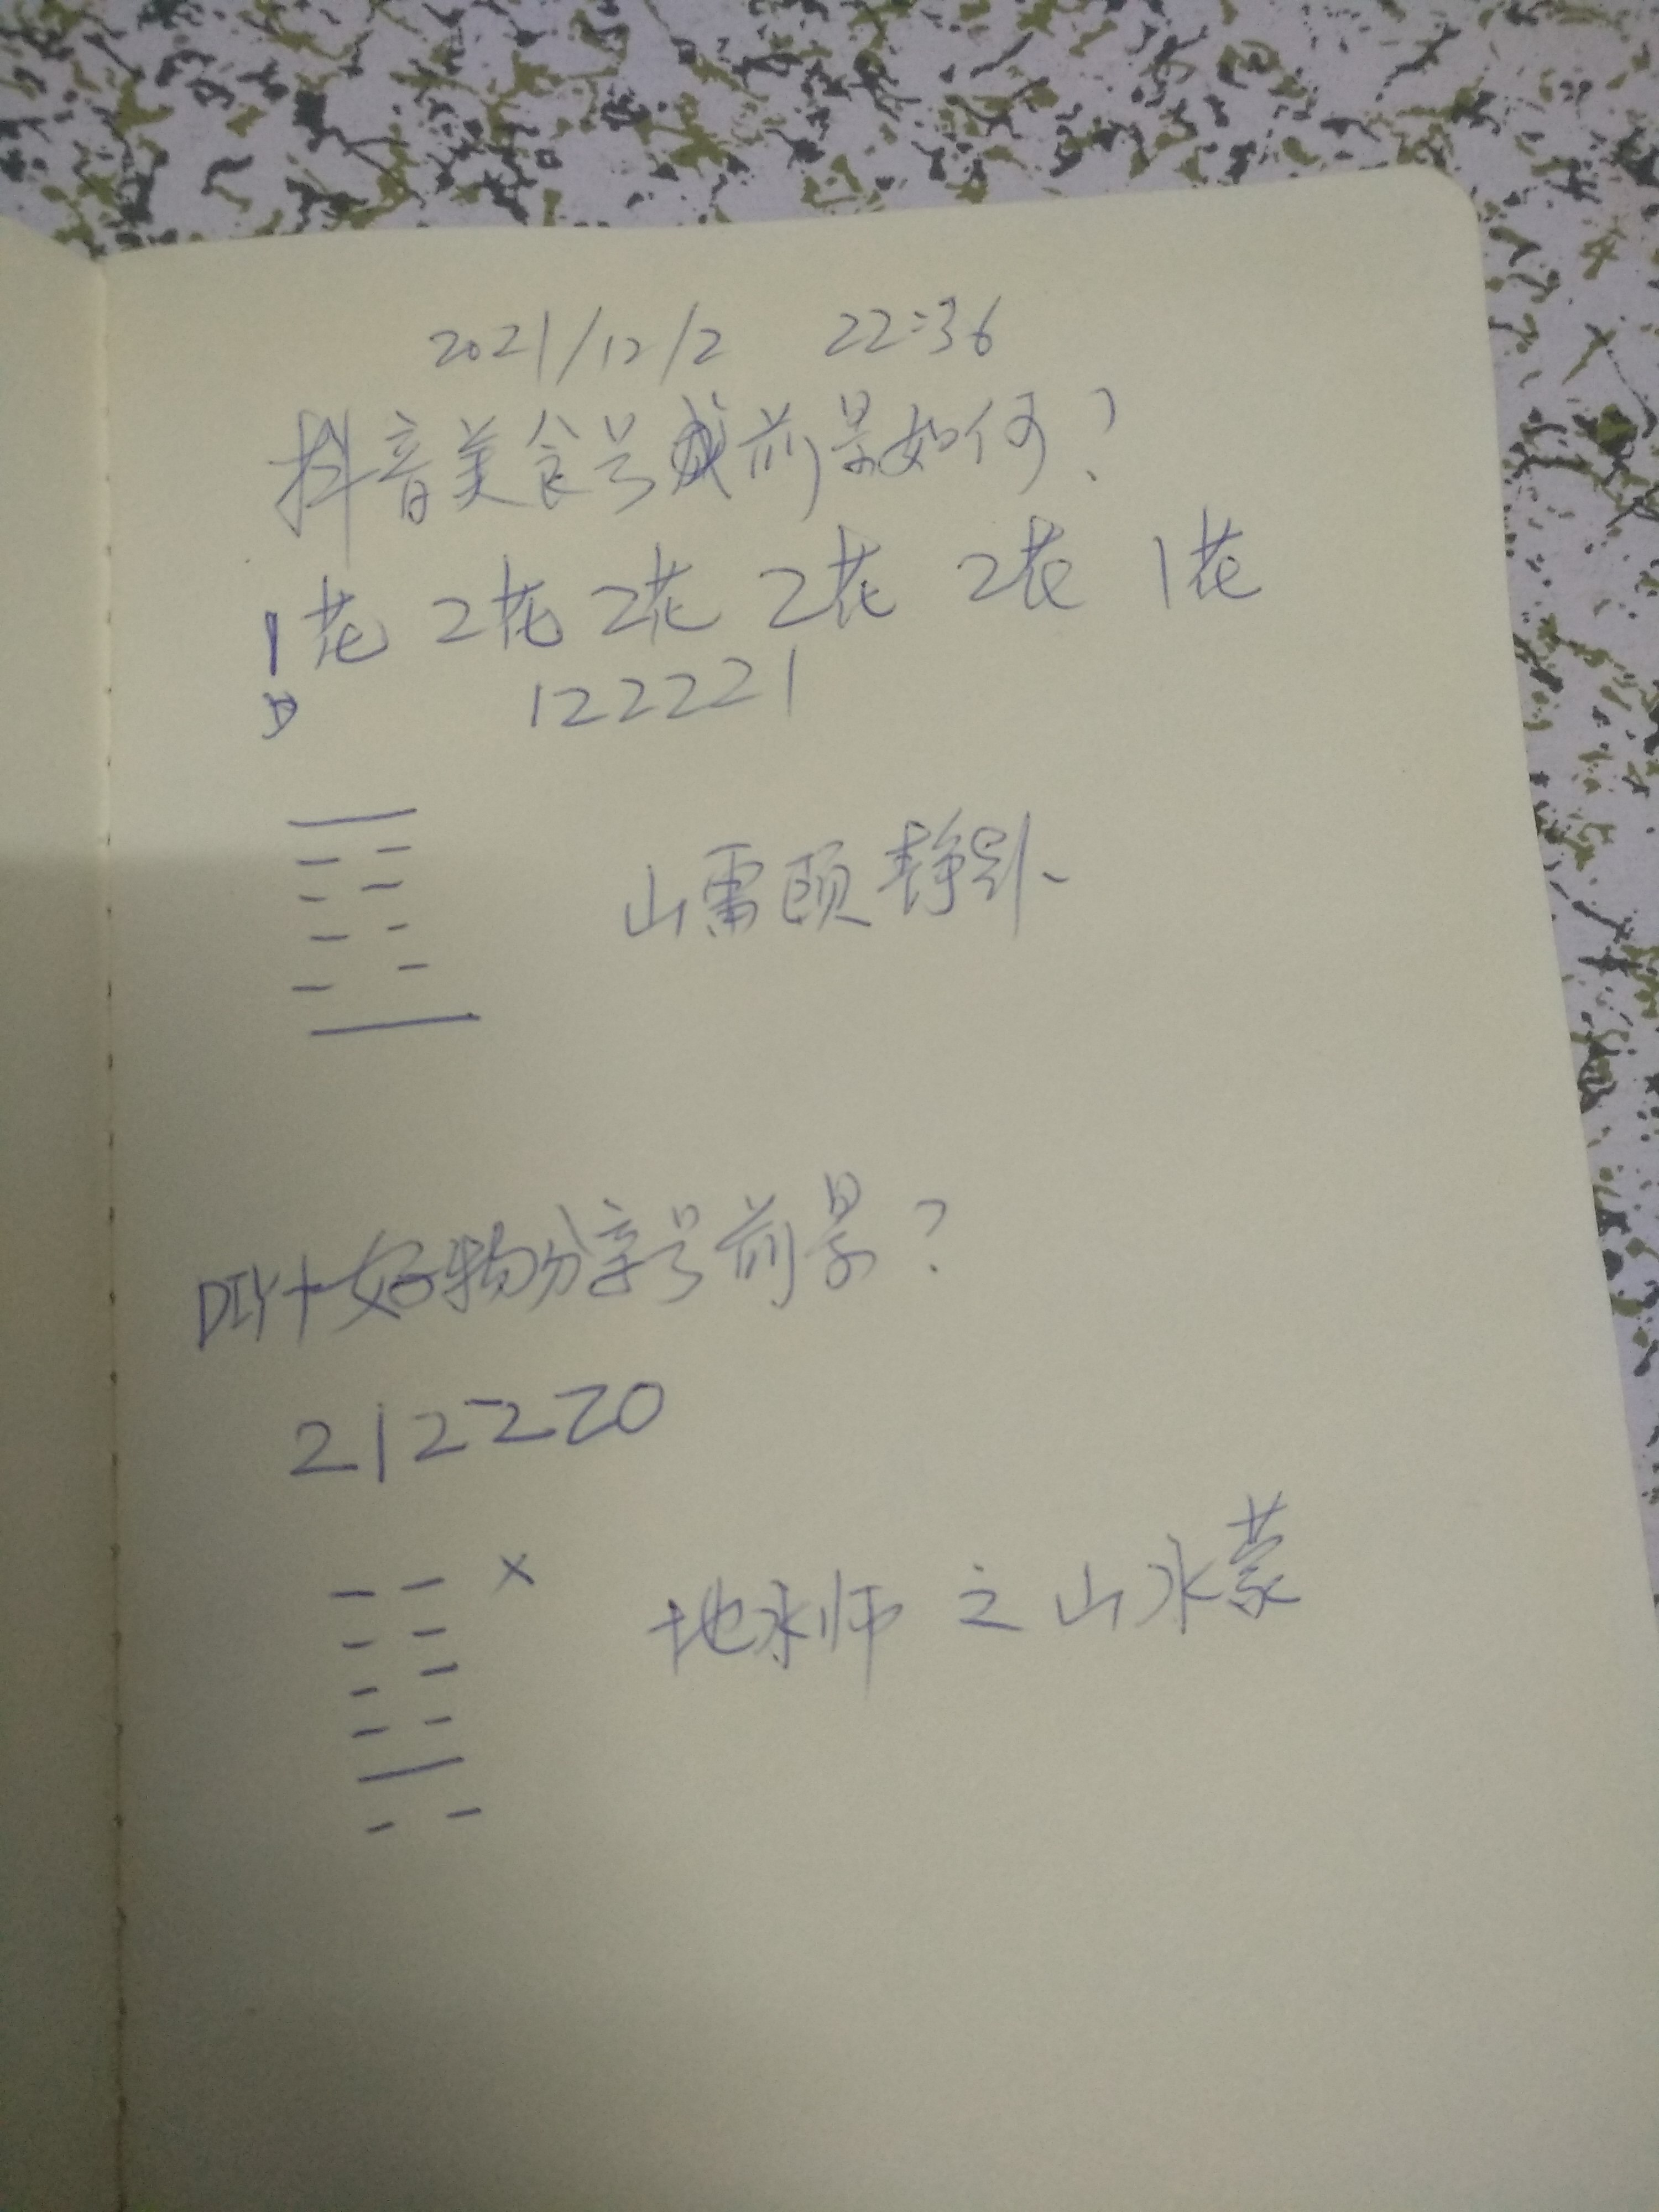 2021/12/2 22:36
抖音美食号前景如何？
1花 2花 2花 2花 2花 1花
122221
山雷颐静卦
DIY+好物分享号前景？
212220
× 地水师 之 山水蒙